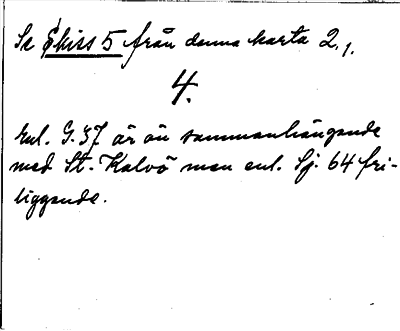 Se Skiss 5 från denna karta 2,1.
4.
Enl. G.37 är ön sammanhängande
med St. Kalvö men enl. Sj. 64 fri-
liggande.